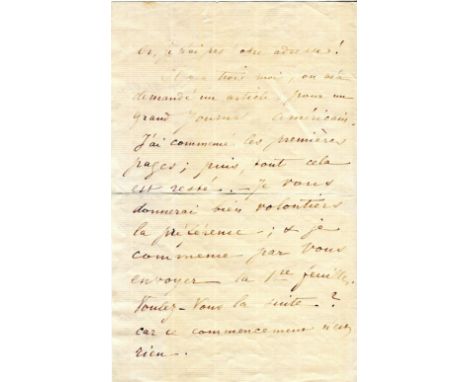 Or, je n'ai pas votre adresse!
Il y a trois mois, on m'a
demandé un article, pour un
grand Journal Américain.
J'ai commencé les premières
pages; puis, tout cela
est resté... - Je vous
donnerai bien volontiers
la préférence; & je
commence par vous
envoyer la 1re feuille.
Voulez-Vous la suite?
car ce commencement n'est
rien.